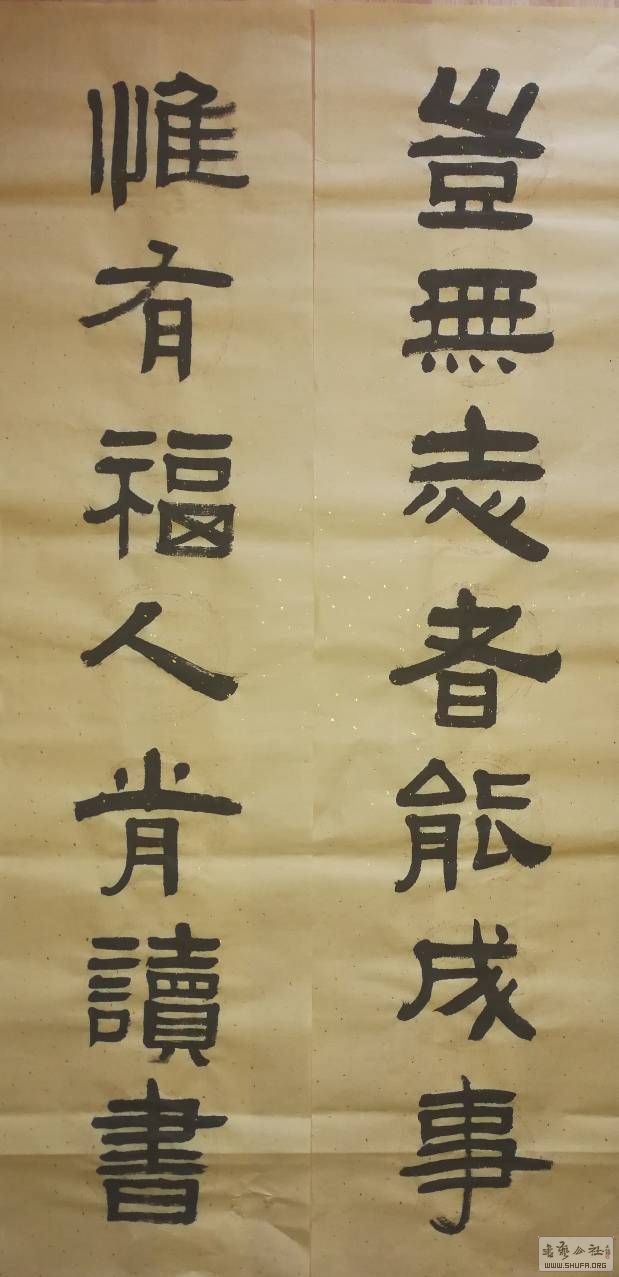 豈無志者能成事
惟有福人肯讀書
書藝公社
WWW.SHUFA.ORG